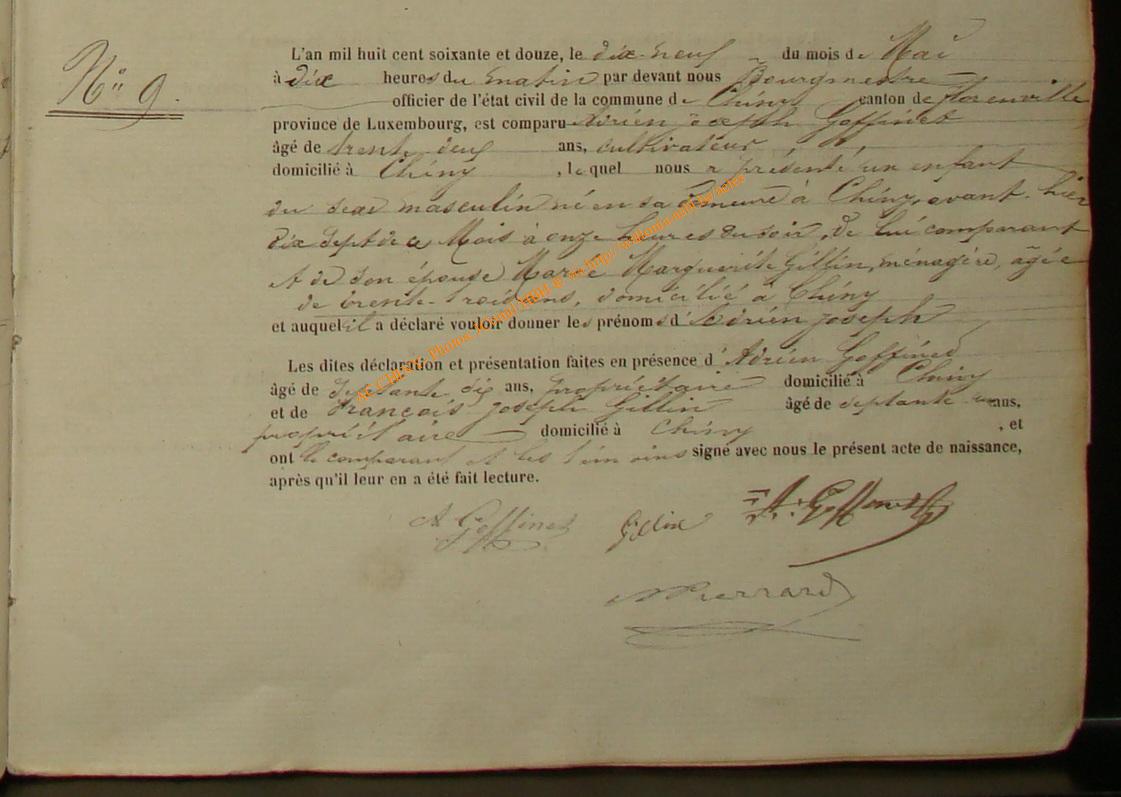 N° 9.
L'an mil huit cent soixante et douze, le dix-neuf du mois de Mai
à dix heures du matin par devant nous Bourgmestre
officier de l'état civil de la commune de Chiny canton de florenville
province de Luxembourg, est comparu Adrien joseph Goffinet
âgé de trente deux ans, cultivateur
domicilié à Chiny, lequel nous a présenté un enfant
du sexe masculin né en sa demeure à Chiny, avant-hier
dix sept de ce Mois à onze heures du soir, de lui comparant
et de son épouse Marie Marguerite Gillin, ménagère, âgée
de trente-trois ans, domicilié à Chiny
et auquel il a déclaré vouloir donner les prénoms d'Adrien joseph
Les dites déclaration et présentation faites en présence d'Adrien Goffinet
âgé de septante six ans, propriétaire domicilié à Chiny
et de François joseph Gillin âgé de septante-un ans,
propriétaire domicilié à Chiny, et
ont le comparant et les témoins signé avec nous le présent acte de naissance,
après qu'il leur en a été fait lecture.
A Goffinet Gillin A. Goffinet
Pierrard